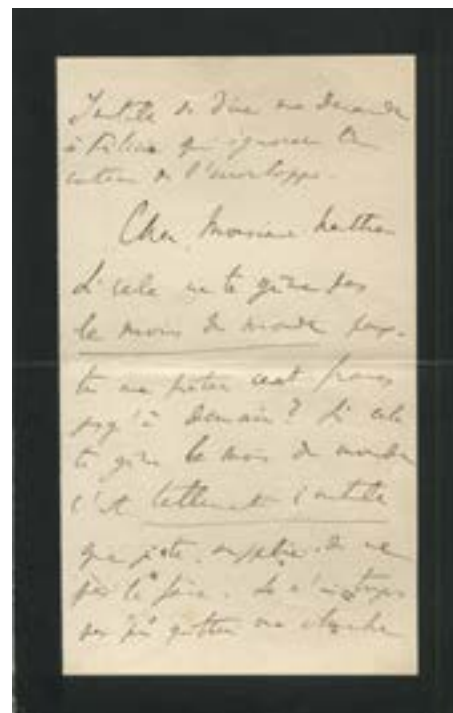 Inutile de dire ma demande
à Félicie qui ignorera le
contenu de l'enveloppe.
Cher Monsieur
Si cela ne te gêne pas
le moins du monde peux-
tu me prêter cent francs
jusqu'à demain? Si cela
te gêne le moins du monde
c'est tellement inutile
que je te supplie de ne
pas le faire. Je n'ai
pas pu quitter ma chambre